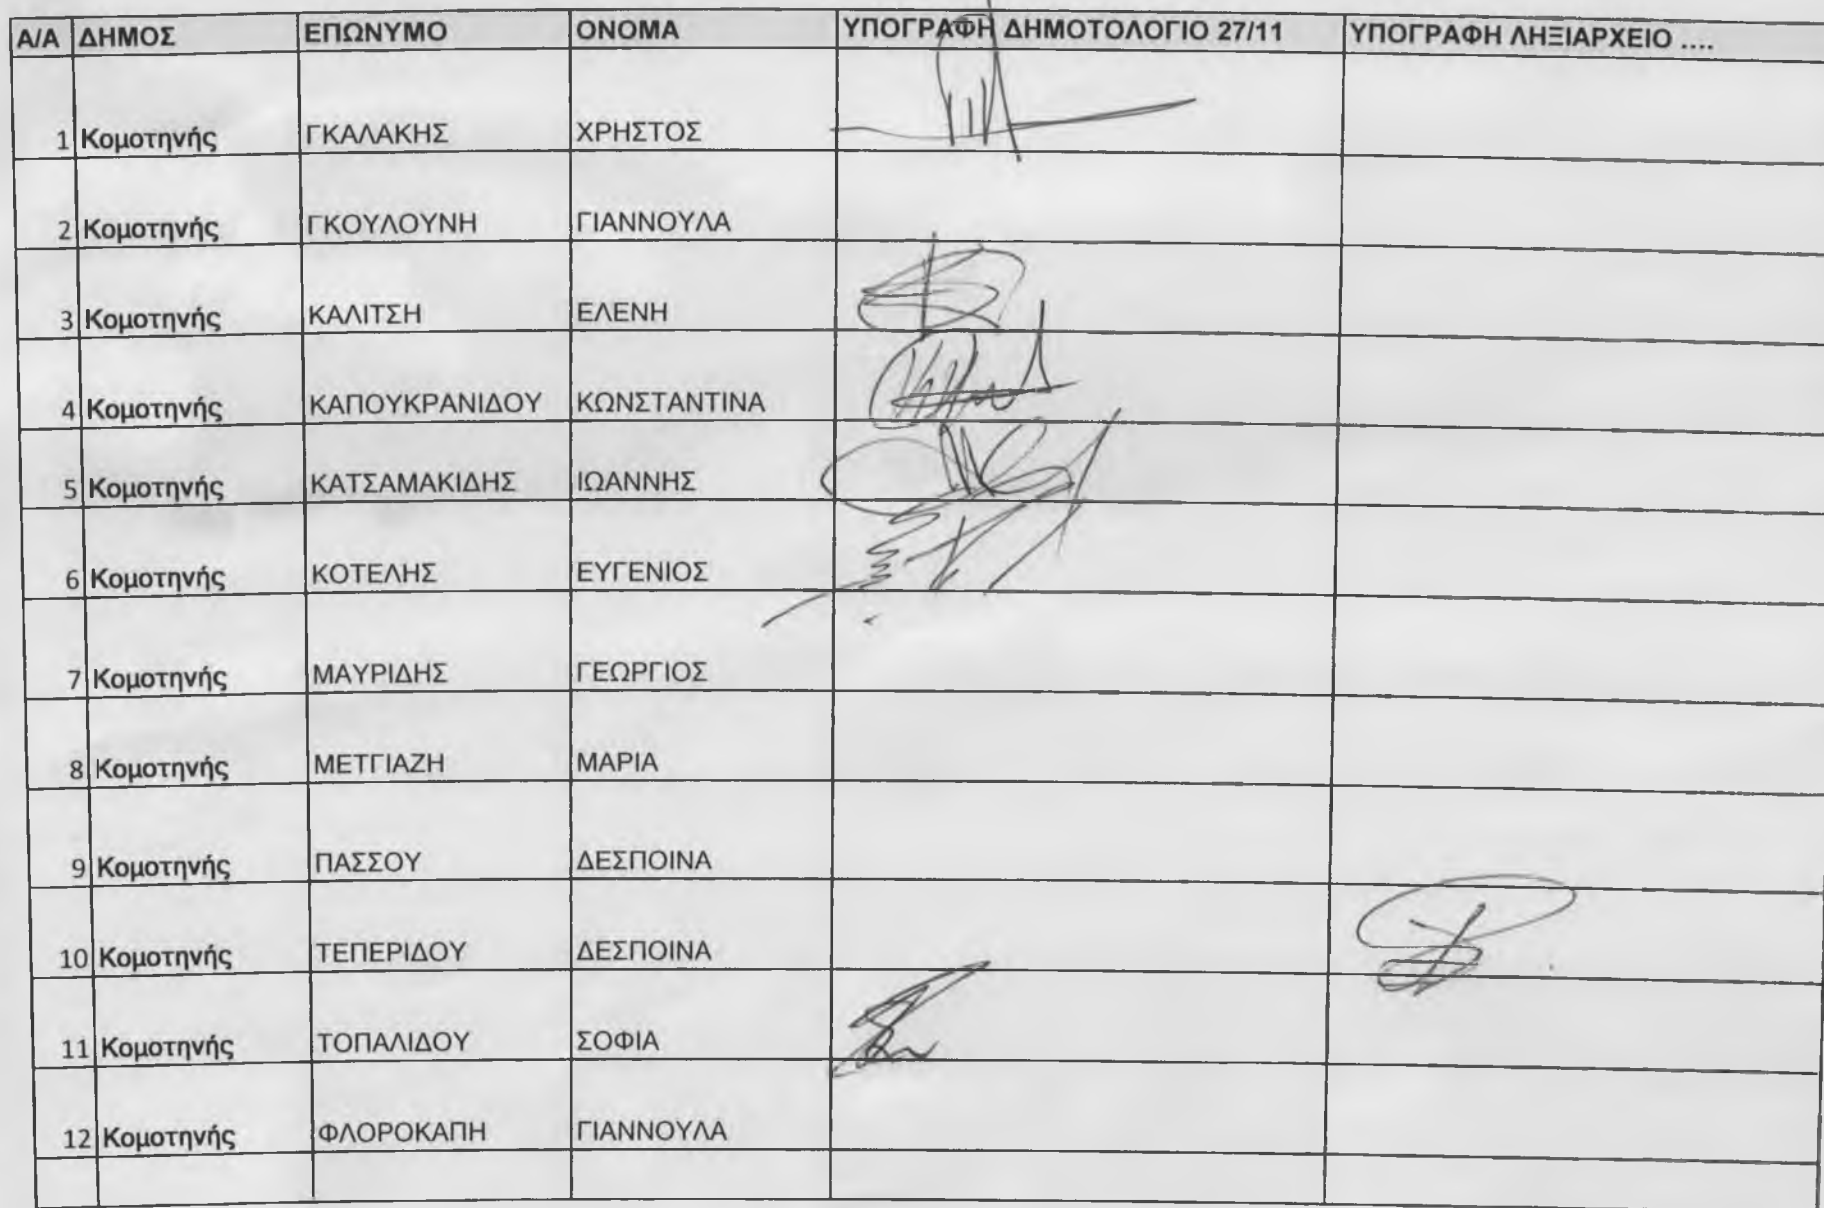 Α/Α ΔΗΜΟΣ ΕΠΩΝΥΜΟ ΟΝΟΜΑ ΥΠΟΓΡΑΦΗ ΔΗΜΟΤΟΛΟΓΙΟ 27/11 ΥΠΟΓΡΑΦΗ ΛΗΞΙΑΡΧΕΙΟ ....
1 Κομοτηνής ΓΚΑΛΑΚΗΣ ΧΡΗΣΤΟΣ
2 Κομοτηνής ΓΚΟΥΛΟΥΝΗ ΓΙΑΝΝΟΥΛΑ
3 Κομοτηνής ΚΑΛΙΤΣΗ ΕΛΕΝΗ
4 Κομοτηνής ΚΑΠΟΥΚΡΑΝΙΔΟΥ ΚΩΝΣΤΑΝΤΙΝΑ
5 Κομοτηνής ΚΑΤΣΑΜΑΚΙΔΗΣ ΙΩΑΝΝΗΣ
6 Κομοτηνής ΚΟΤΕΛΗΣ ΕΥΓΕΝΙΟΣ
7 Κομοτηνής ΜΑΥΡΙΔΗΣ ΓΕΩΡΓΙΟΣ
8 Κομοτηνής ΜΕΤΓΙΑΖΗ ΜΑΡΙΑ
9 Κομοτηνής ΠΑΣΣΟΥ ΔΕΣΠΟΙΝΑ
10 Κομοτηνής ΤΕΠΕΡΙΔΟΥ ΔΕΣΠΟΙΝΑ
11 Κομοτηνής ΤΟΠΑΛΙΔΟΥ ΣΟΦΙΑ
12 Κομοτηνής ΦΛΟΡΟΚΑΠΗ ΓΙΑΝΝΟΥΛΑ